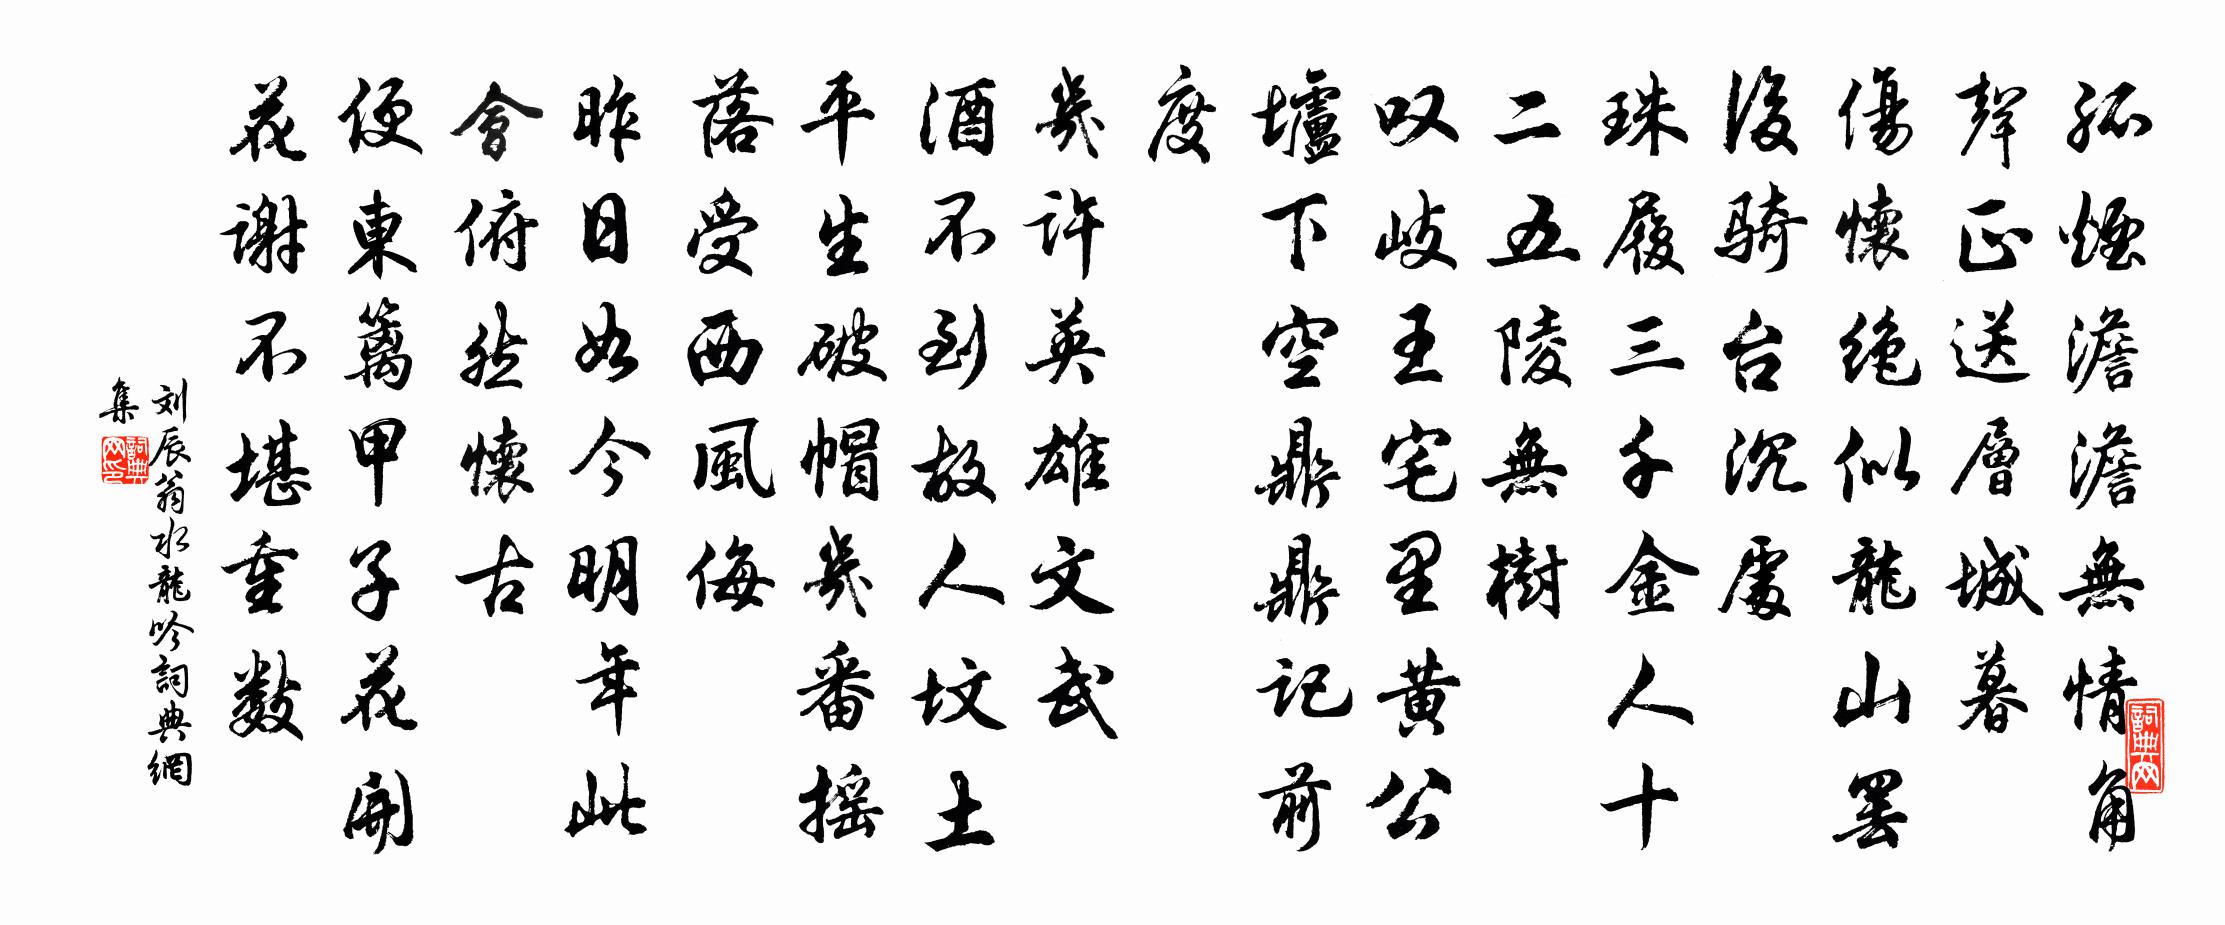 孤煙澹澹無情角
聲正送層城暮
傷懷絶似龍山罢
後骑台沉處
珠履三千金人十
二五陵無樹
叹岐王宅里黄公
壚下空鼎鼎記前
度
幾许英雄文武
酒不到故人坟土
平生破帽幾番摇
落受西風侮
昨日如今明年此
會俯然懷古
便東篱甲子花開
花谢不堪重数
刘辰翁水龍吟詞典網
集
詞典网
詞典网印